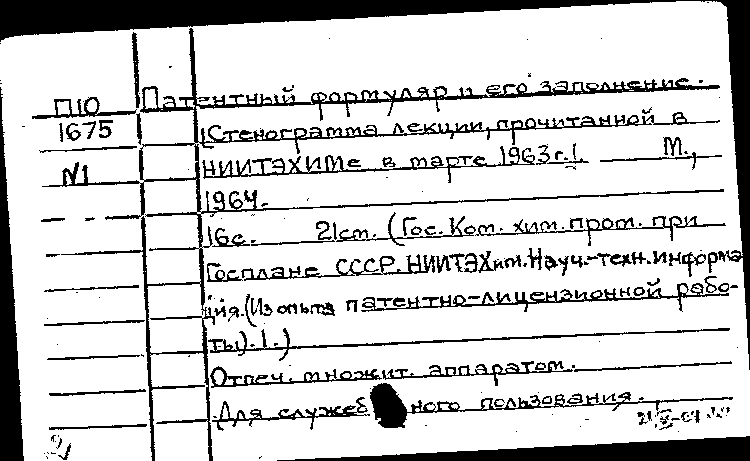 П10 Патентный формуляр и его заполнение.
1675 (Стенограмма лекции, прочитанной в
N1 НИИТЭХИМе в марте 1963 г.). М.,
1964.
16с. 21см. (Гос. Ком. хим. пром. при
Госплане СССР. НИИТЭХим. Науч.-техн. информа
ция. (Из опыта патентно-лицензионной рабо-
ты). 1.)
Отпеч. множит. аппаратом.
Для служебного пользования.